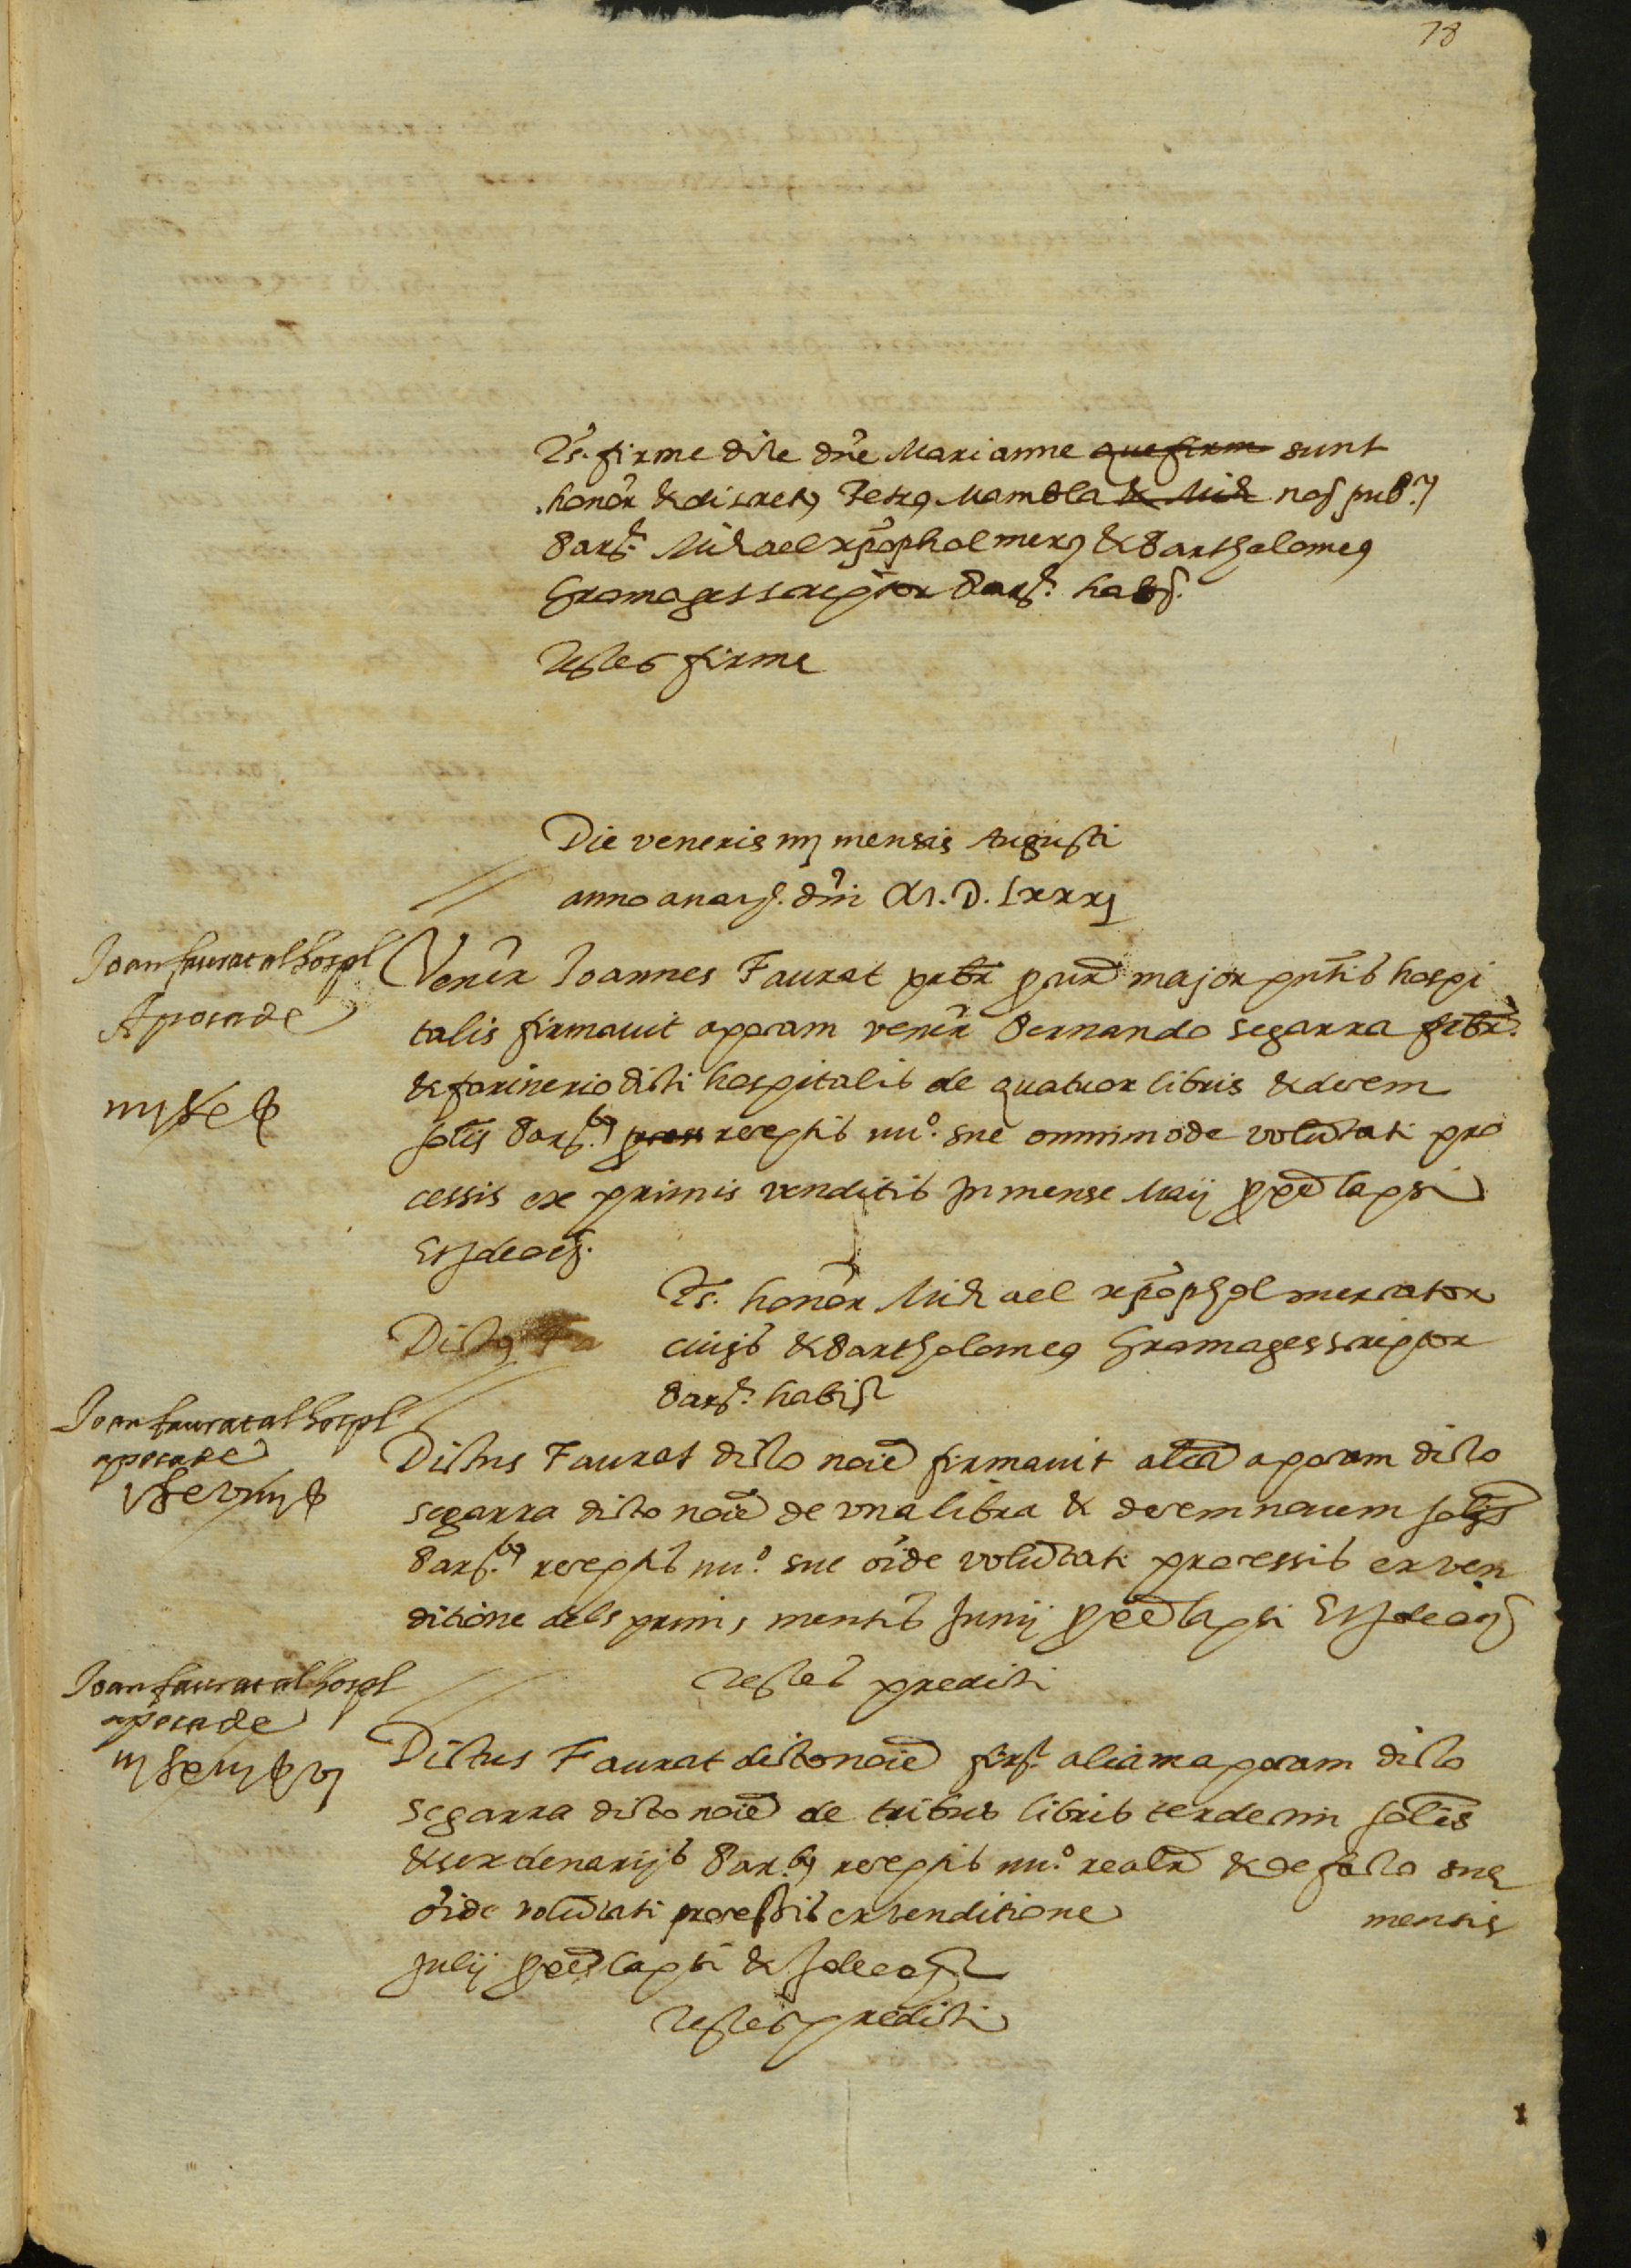 78
Ts. firme dicte dne Marianne que firm sunt
honor & discretq Petrq Mambla & Mich not pub.
Barª. Michael xpophol merq & Bartholomeq
Gramages scriptor Barª. habs.
Testes firme
Die veneris iiij mensis Augusti
anno a natᵉ. dni M. D. Lxxxj
Joan faurat al hospl
Apocade
iiij £ e x
Vener Joannes Faurat prbr procur major pntis hospi
talis firmavit apocam vener Bernando Segarra prbr.
& farinerio dicti hospitalis de quatuor libris & decem
solis Barª. receptis nuº. sue omnimode voluntati pro
cessis ex primis venditis in mense Maij pxe lapsi
Et ideo etc.
Dictq Fa
Ts. honor Michael xpophol mercator
civis & Bartholomeq Gramages scriptor
Barª. habis
Joan faurat al hospl
apocade
Dictus Faurat dicto noie firmavit alia apocam dicto
Segarra dicto noie de una libra & decem novem solis
Barª. receptis nuº. sue oide voluntati processis ex ven
ditione dels primis mensis Junij pxe lapsi Et ideo etc
Testes predicti
Joan faurat al hospl
apocade
Dictus Faurat dicto noie firª. aliam apocam dicto
Segarra dicto noie de tribus libris terdecim solis
& sex denarijs Bar. receptis nuº. realr & de facto sue
oide voluntati processis ex venditione mensis
Julij pxe lapsi & ideo etc
Testes predicti